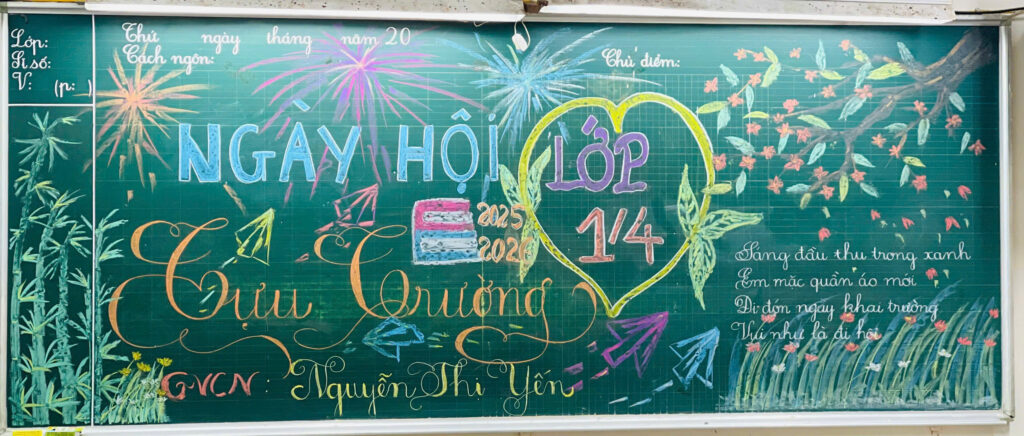 Lớp:
Sĩ số:
V: (p: )
Thứ ngày tháng năm 20
Cách ngôn:
Chủ điểm:
NGÀY HỘI
Tựu Trường
2025
2026
LỚP
1/4
GVCN : Nguyễn Thị Yến
Sáng đầu thu trong xanh
Em mặc quần áo mới
Đi đón ngày khai trường
Vui như là đi hội